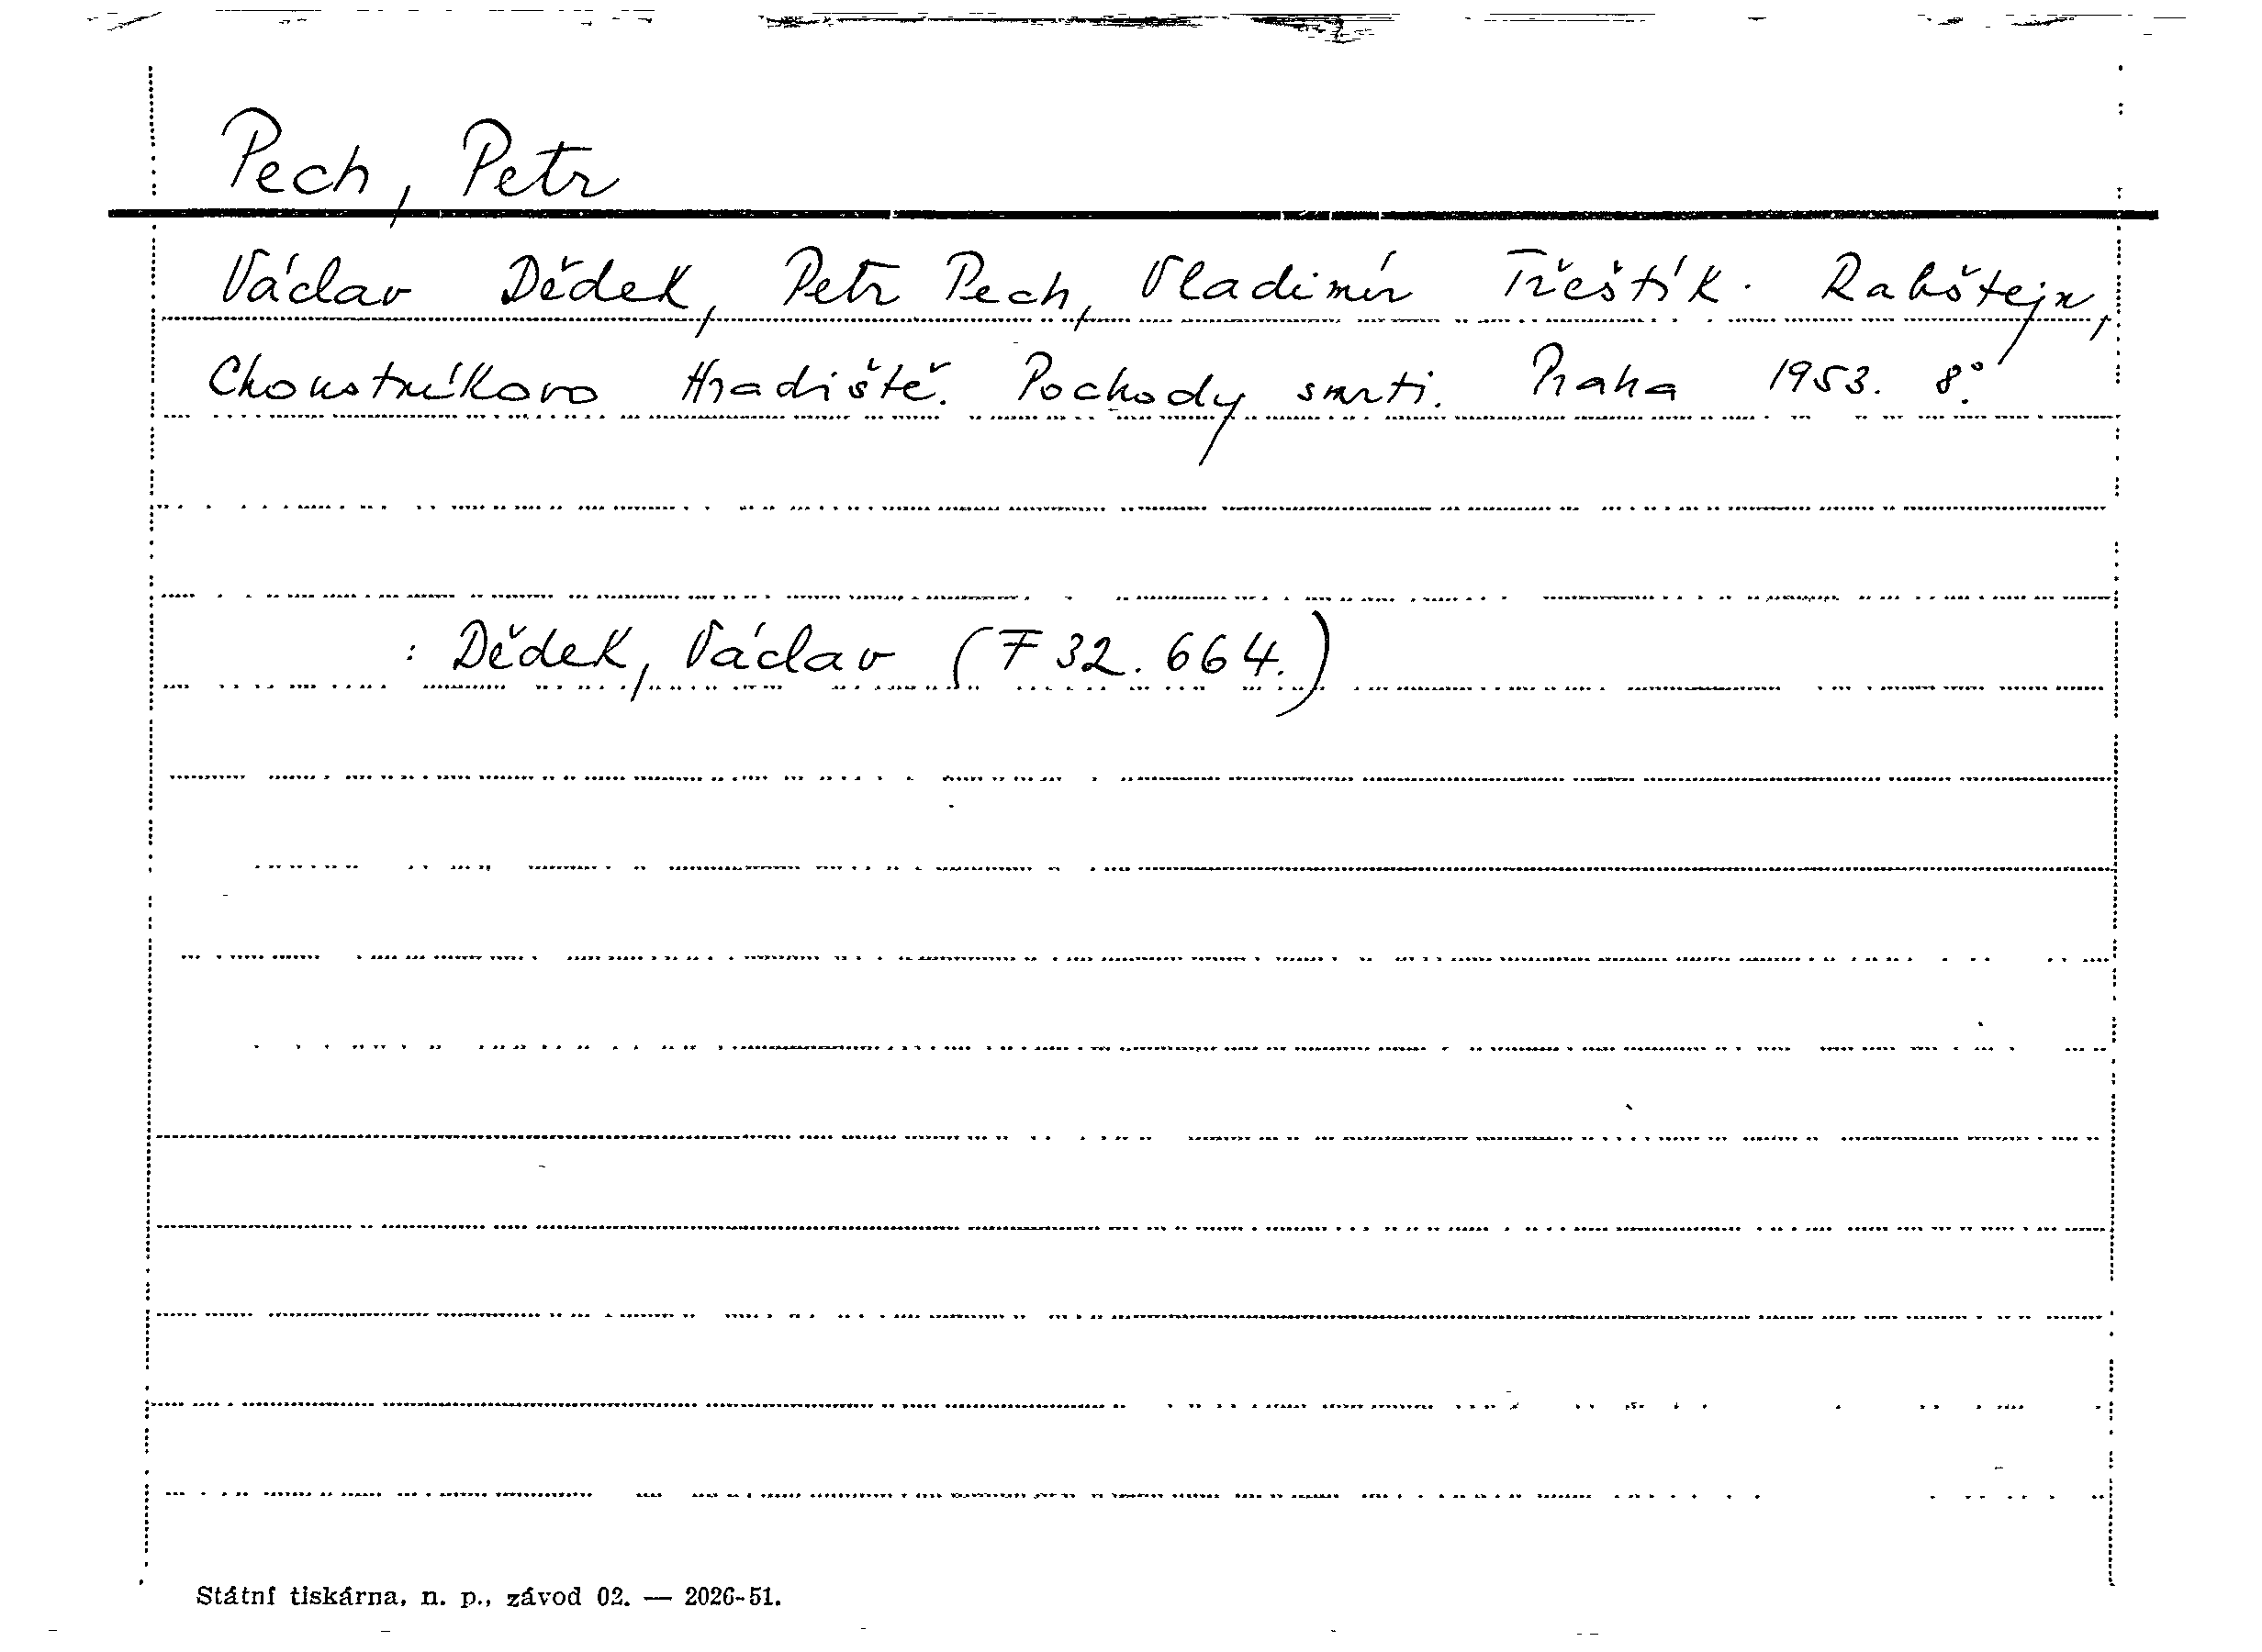 Pech, Petr
Václav Dědek, Petr Pech, Vladimír Třeštík. Rabštejn,
Choustníkovo Hradiště. Pochody smrti. Praha 1953. 8°.
: Dědek, Václav (F 32.664.)
Státní tiskárna, n. p., závod 02. — 2026-51.